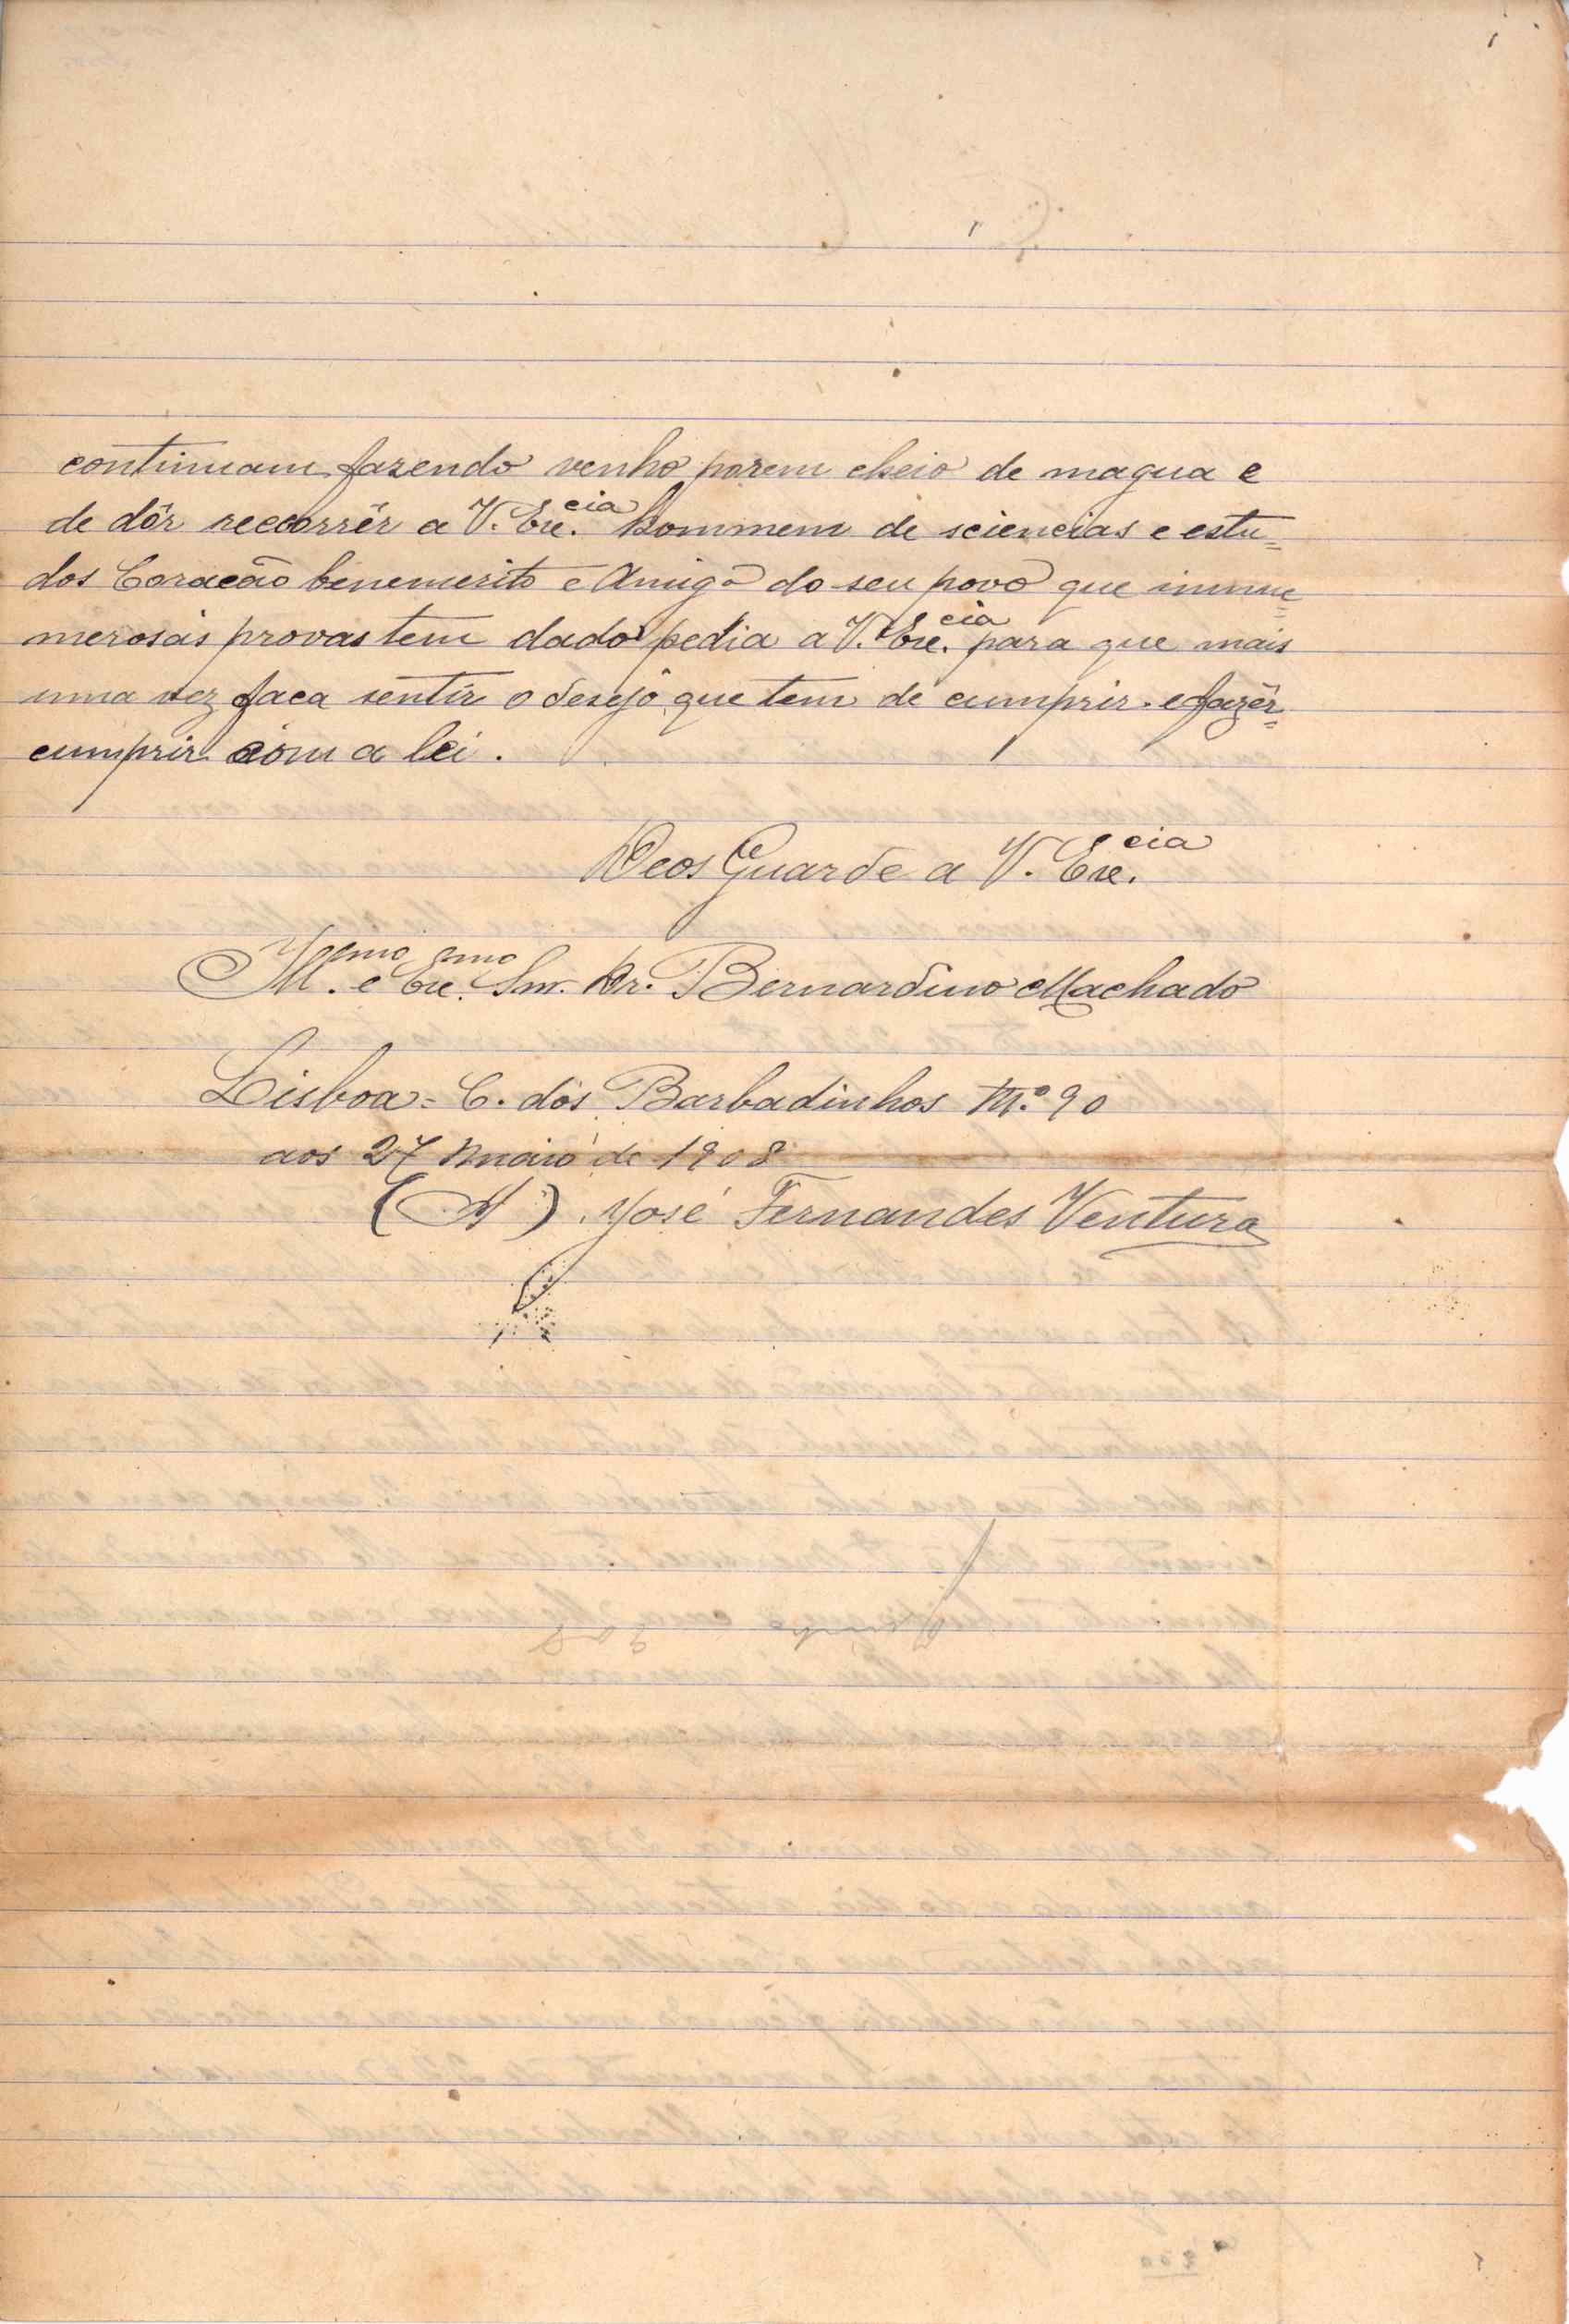 continuam fazendo venho porem cheio de magua e
de dôr reccorrêr a V. Exc.cia hommem de sciencias e estu=
dos Coracão benemerito e Amigo do seu povo que innue=
merosas provas tem dado pedia a V. Exc.cia para que mais
uma vez faca sentir o desejo que tem de cumprir e fazêr=
cumprir com a lei.
Deos Guarde a V. Exc.cia
Ill.emo e Exc.emo Snr. Dr. Bernardino Machado
Lisboa = C. dos Barbadinhos N.º 90
aos 27 Maio de 1908
(A) José Fernandes Ventura